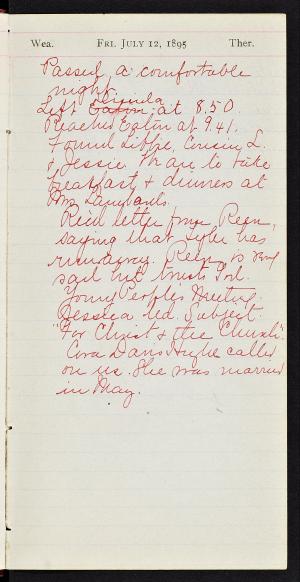 Wea. FRI. JULY 12, 1895 Ther.
Passed a comfortable
night.
Left Eaton at 8.50
Reached Eaton at 9.41.
Found Libbie, Cousin L.
& Jessie. We are to take
breakfast & dinners at
Mrs
Rec'd letter from Reen,
saying that has
runaway. Reen is very
sad but trusts God.
Young People's Meeting.
Jessica led. Subject.
"For Christ & the Church".
Cora Davis called
on us. She was married
in May.